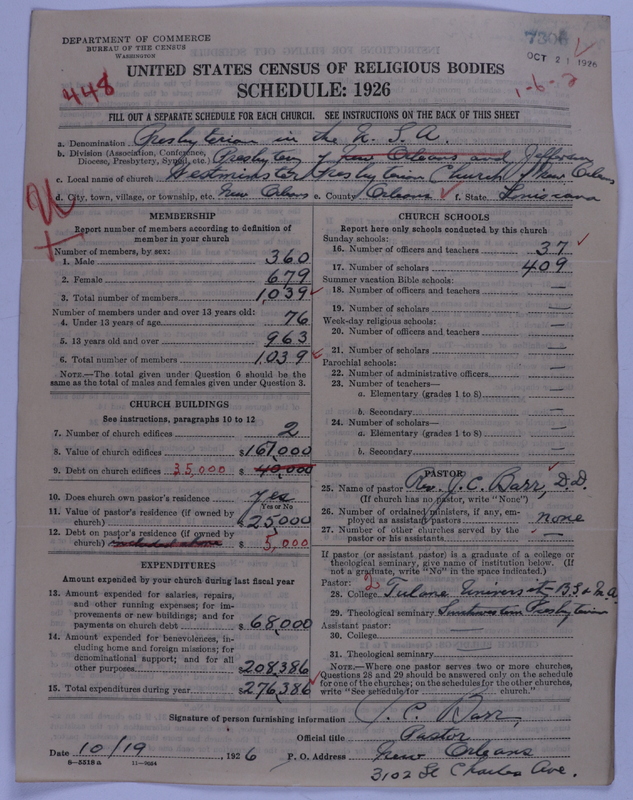 DEPARTMENT OF COMMERCE
BUREAU OF THE CENSUS
WASHINGTON
OCT 21 1926
448
1-6-2
UNITED STATES CENSUS OF RELIGIOUS BODIES
SCHEDULE: 1926
FILL OUT A SEPARATE SCHEDULE FOR EACH CHURCH. SEE INSTRUCTIONS ON THE BACK OF THIS SHEET
a. Denomination Presbyterian in the U. S. A.
b. Division (Association, Conference, Diocese, Presbytery, Synod, etc.) Presbytery of New Orleans and Jefferson
c. Local name of church Westminster Presbyterian Church of New Orleans
d. City, town, village, or township, etc. New Orleans e. County Orleans f. State Louisiana
MEMBERSHIP
Report number of members according to definition of
member in your church
Number of members, by sex:
1. Male 360
2. Female 679
3. Total number of members 1,039
Number of members under and over 13 years old:
4. Under 13 years of age 76
5. 13 years old and over 963
6. Total number of members 1,039
NOTE.—The total given under Question 6 should be
same as the total of males and females given under Question 3.
CHURCH BUILDINGS
See instructions, paragraphs 10 to 12
7. Number of church edifices 2
8. Value of church edifices $ 161,000
9. Debt on church edifices 35,000 $ 40,000
10. Does church own pastor's residence yes
Yes or No
11. Value of pastor's residence (if owned by
church) $ 25,000
12. Debt on pastor's residence (if owned by
church) included above $ 5,000
EXPENDITURES
Amount expended by your church during last fiscal year
13. Amount expended for salaries, repairs,
and other running expenses; for im-
provements or new buildings; and for
payments on church debt $ 68,000
14. Amount expended for benevolences, in-
cluding home and foreign missions; for
denominational support; and for all
other purposes $ 208,386
15. Total expenditures during year $ 276,386
CHURCH SCHOOLS
Report here only schools conducted by this church
Sunday schools:
16. Number of officers and teachers 37
17. Number of scholars 409
Summer vacation Bible schools:
18. Number of officers and teachers —
19. Number of scholars —
Week-day religious schools:
20. Number of officers and teachers —
21. Number of scholars —
Parochial schools:
22. Number of administrative officers —
23. Number of teachers—
a. Elementary (grades 1 to 8) —
b. Secondary —
24. Number of scholars—
a. Elementary (grades 1 to 8) —
b. Secondary —
PASTOR
25. Name of pastor Rev. J. C. Barr, D.D.
(If church has no pastor, write "None")
26. Number of ordained ministers, if any, em-
ployed as assistant pastors none
27. Number of other churches served by the
pastor or his assistants —
If pastor (or assistant pastor) is a graduate of a college or
theological seminary, give name of institution below. (If
not a graduate, write "No" in the space indicated.)
Pastor:
28. College Tulane University B.S. & M.A.
29. Theological seminary Southwestern Presbyterian
Assistant pastor:
30. College
31. Theological seminary
NOTE.—Where one pastor serves two or more churches,
Questions 28 and 29 should be answered only on the schedule
for one of the churches; on the schedules for the other churches,
write "See schedule for church."
Signature of person furnishing information J. C. Barr
Official title Pastor
Date 10/19, 1926 P. O. Address New Orleans
3102 St Charles Ave.
8—5518 a 11—9024